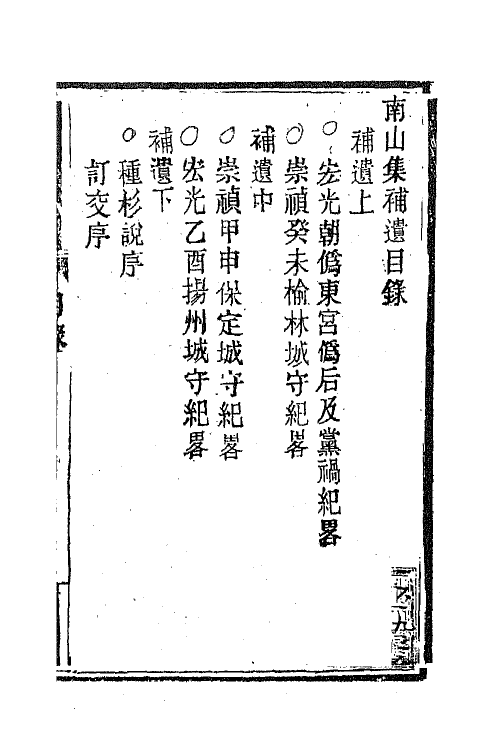 南山集補遺目錄
補遺上
○宏光朝僞東宮僞后及黨禍紀畧
○崇禎癸未榆林城守紀畧
補遺中
○崇禎甲申保定城守紀畧
○宏光乙酉揚州城守紀畧
補遺下
○種杉說序
訂交序